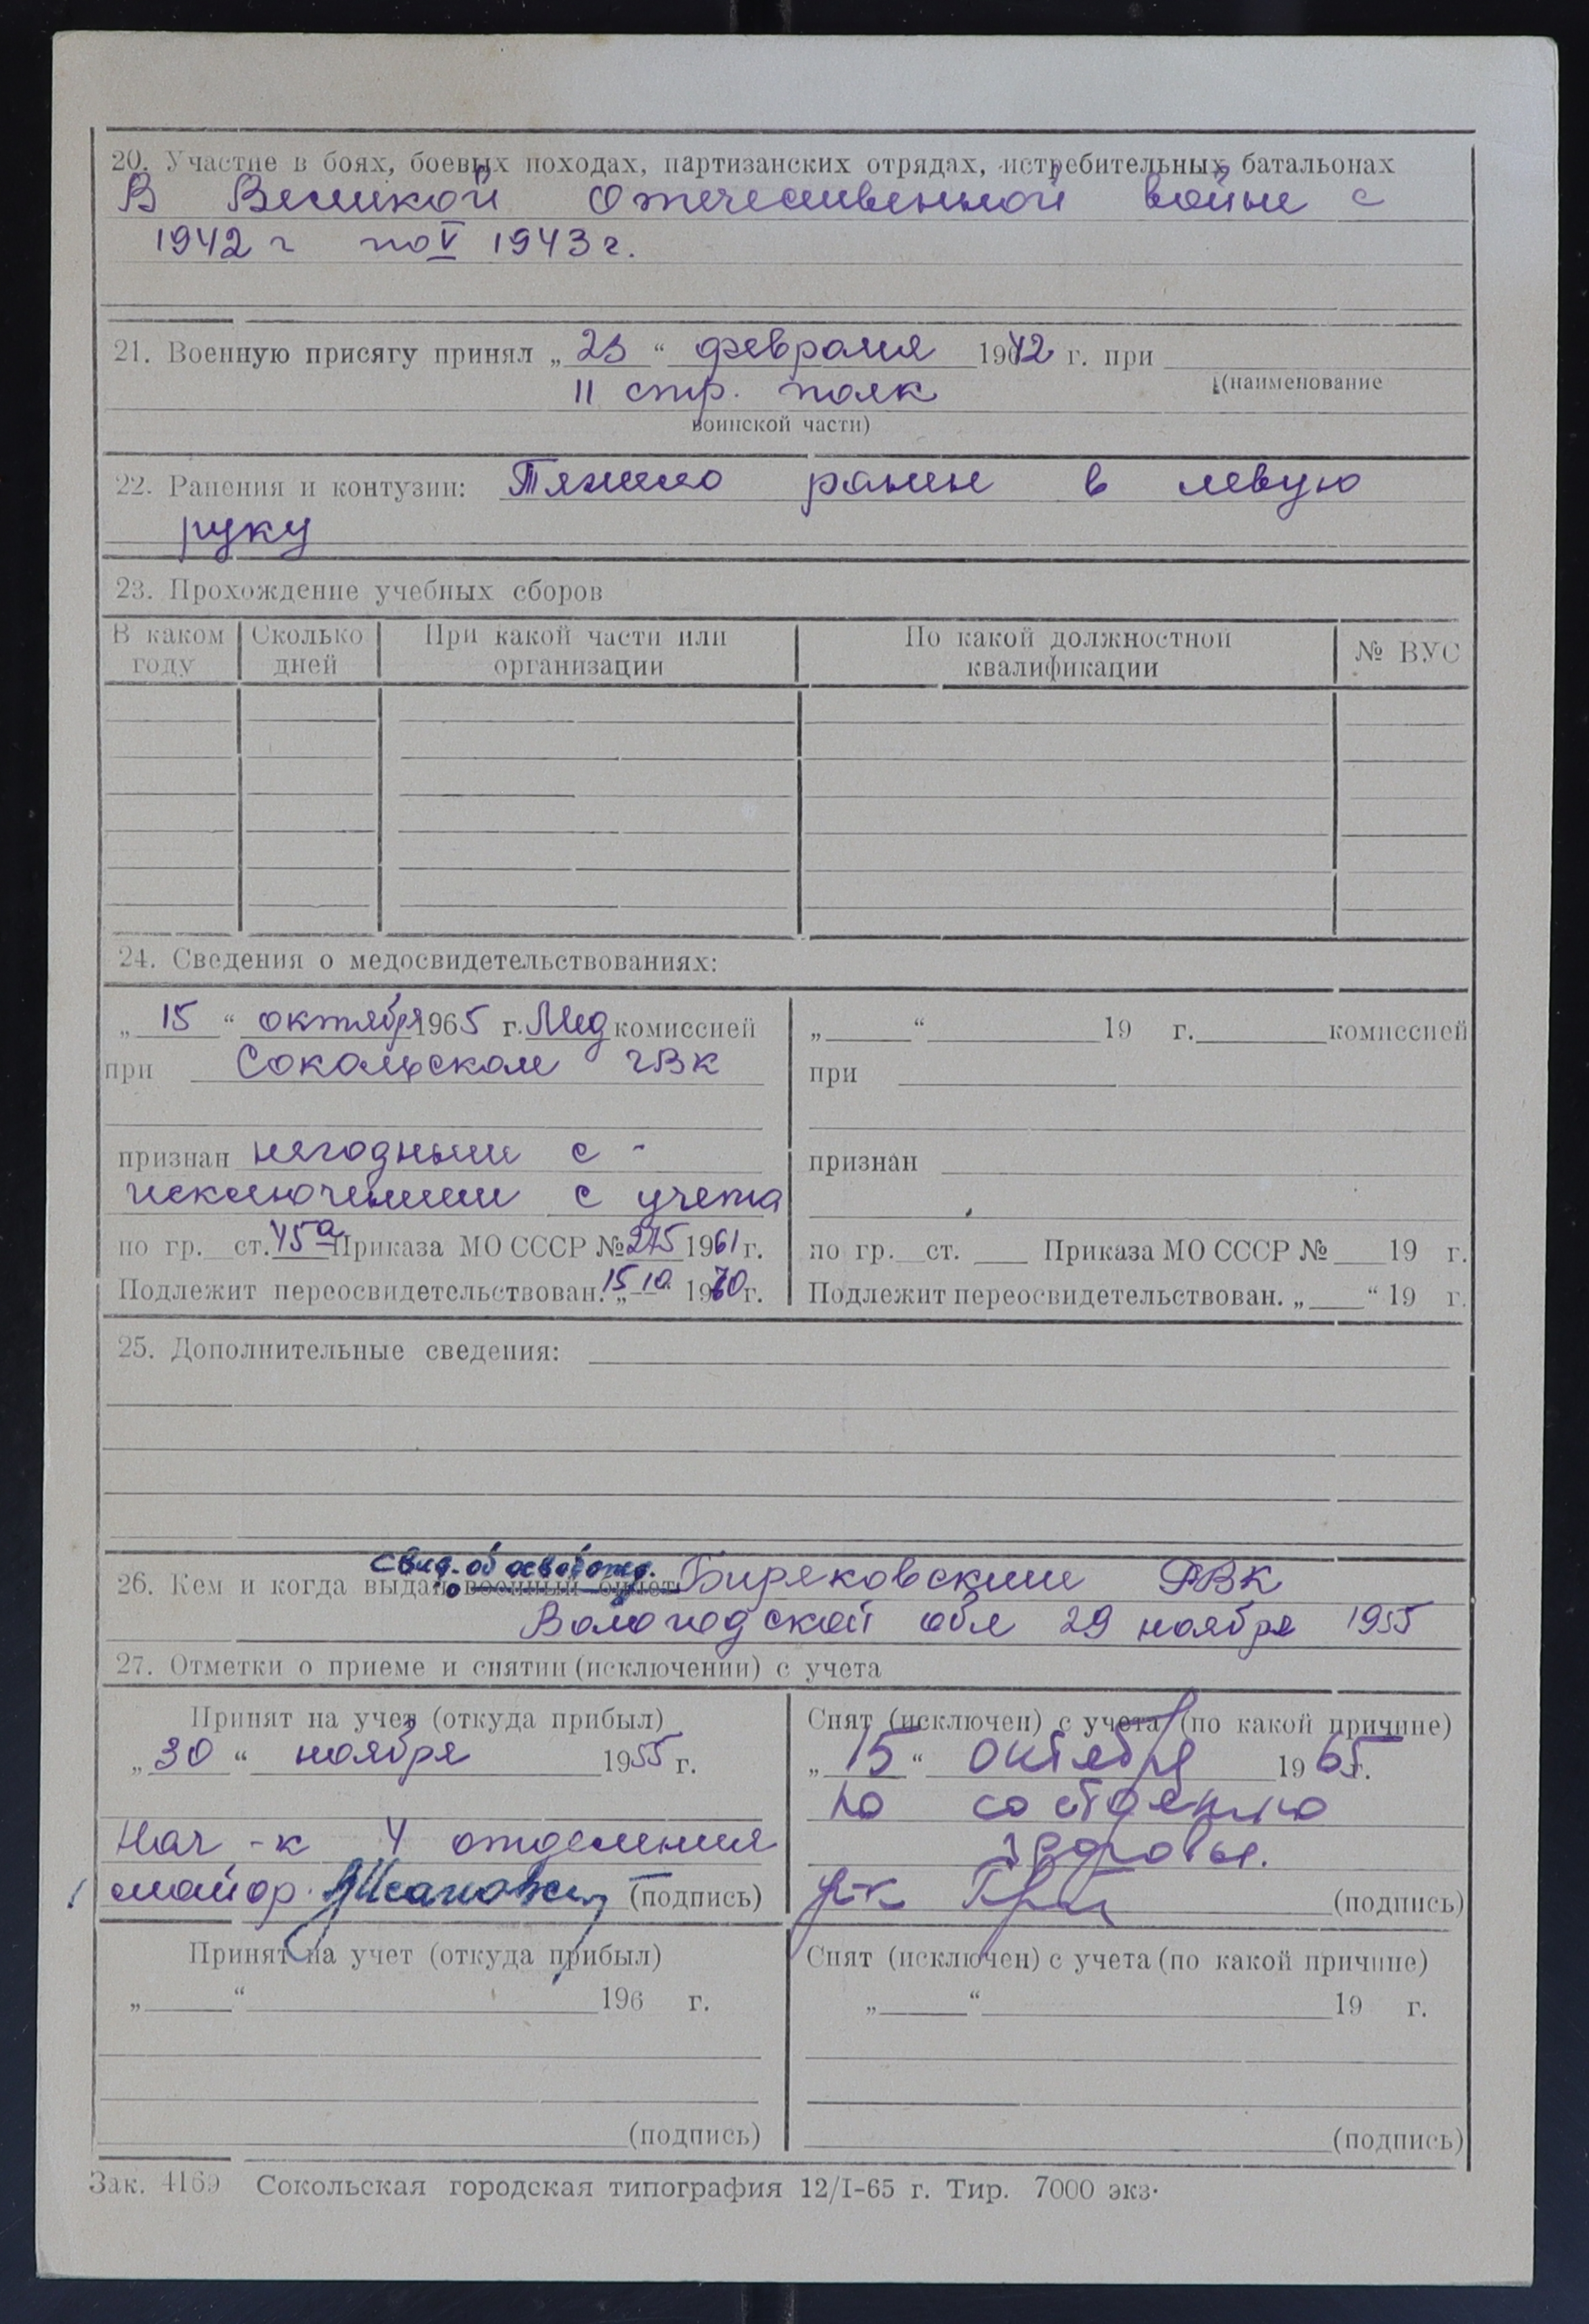 20. Участие в боях, боевых походах, партизанских отрядах, истребительных батальонах
В Великой Отечественной войне с
1942 г по V 1943 г.
21. Военную присягу принял „23“ февраля 1942 г. при
(наименование
11 стр. полк
воинской части)
22. Ранения и контузии: Тяжело ранен в левую
руку
23. Прохождение учебных сборов
В каком году | Сколько дней | При какой части или организации | По какой должностной квалификации | № ВУС
24. Сведения о медосвидетельствованиях:
„15“ октября 1965 г. Мед комиссией
при Сокольском ГВК
признан негодным с -
исключением с учета
по гр. ст. 45а Приказа МО СССР № 275 1961 г.
Подлежит переосвидетельствован. „15.10“ 1970 г.
„ “ 19 г. комиссией
при
признан
по гр. ст. Приказа МО СССР № 19 г.
Подлежит переосвидетельствован. „ “ 19 г.
25. Дополнительные сведения:
свид. об освобожд.
26. Кем и когда выдано военный билет Биряковским РВК
Вологодской обл 29 ноября 1955
27. Отметки о приеме и снятии (исключении) с учета
Принят на учет (откуда прибыл)
„30“ ноября 1955 г.
Нач-к 4 отделения
майор (подпись)
Снят (исключен) с учета (по какой причине)
„15“ октября 1965 г.
по состоянию
здоровья.
(подпись)
Принят на учет (откуда прибыл)
„ “ 196 г.
(подпись)
Снят (исключен) с учета (по какой причине)
„ “ 19 г.
(подпись)
Зак. 4169 Сокольская городская типография 12/I-65 г. Тир. 7000 экз.